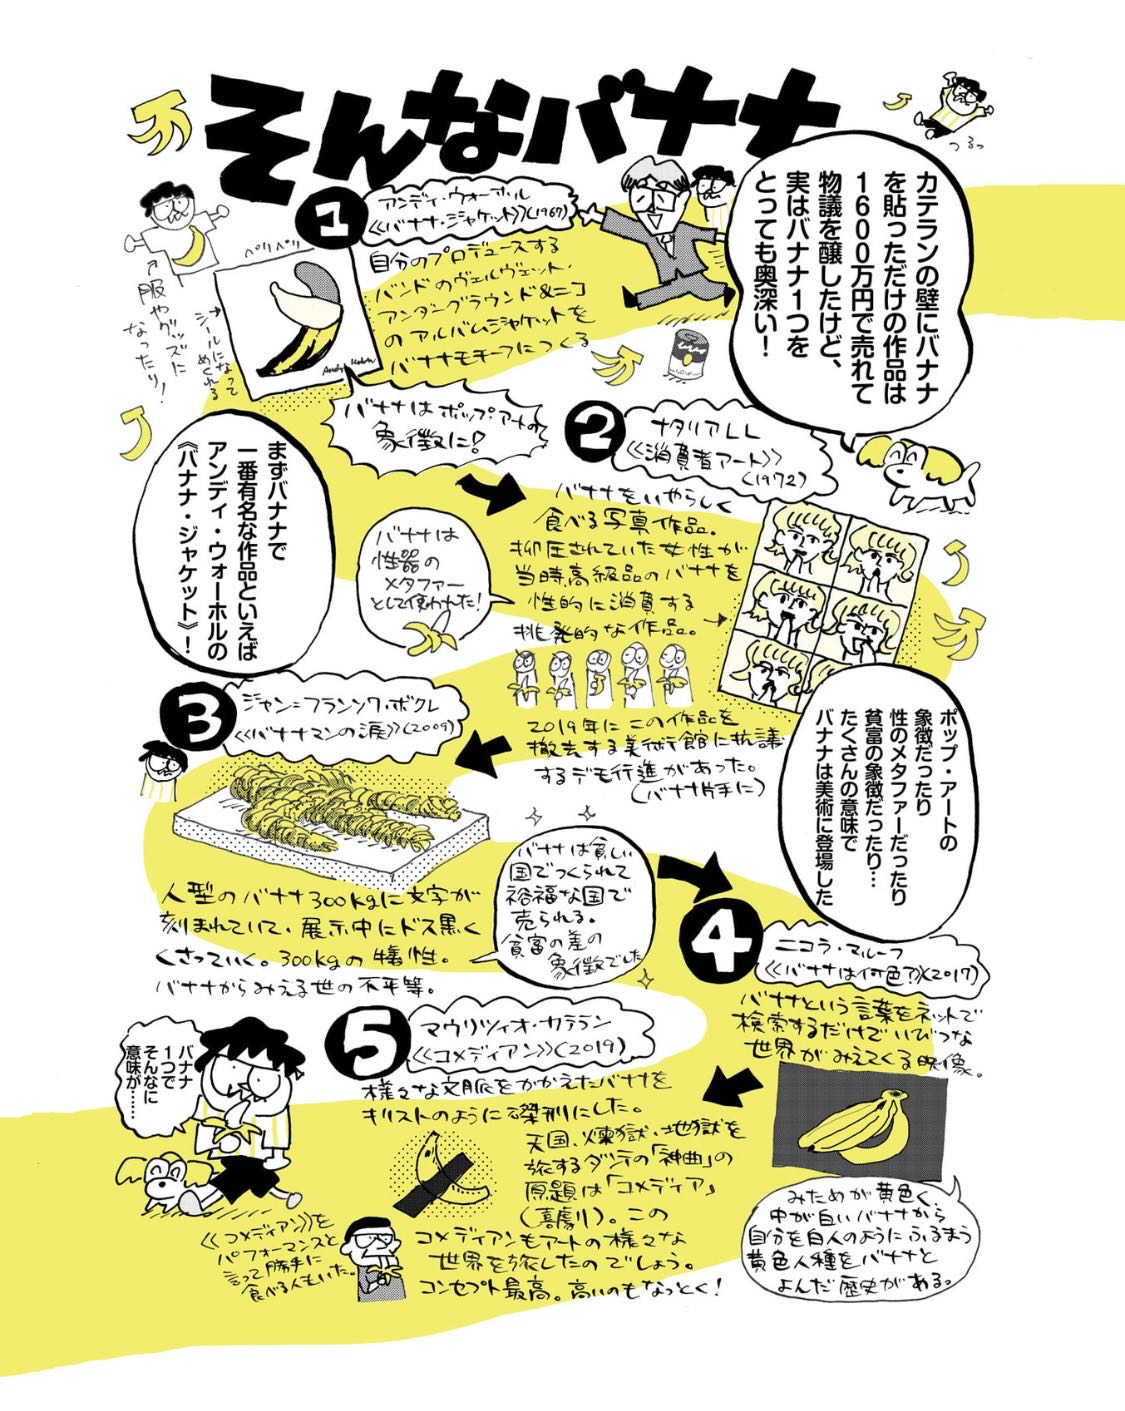 そんなバナナ
つるっ
カテランの壁にバナナ
を貼っただけの作品は
1600万円で売れて
物議を醸したけど、
実はバナナ1つを
とっても奥深い！
1
アンディ・ウォーホル
《バナナ・ジャケット》(1967)
自分のプロデュースする
バンドのヴェルヴェット・
アンダーグラウンド&ニコ
のアルバムジャケットを
バナナモチーフにつくる
ペリペリ
シールになって
めくれる
↑服やグッズに
なったり！
バナナはポップアートの
象徴に！
まずバナナで
一番有名な作品といえば
アンディ・ウォーホルの
《バナナ・ジャケット》！
2
ナタリアLL
《消費者アート》
(1972)
バナナをいやらしく
食べる写真作品。
抑圧されていた女性が
当時高級品のバナナを
性的に消費する
挑発的な作品。
バナナは
性器の
メタファー
として使われた！
2019年にこの作品を
撤去する美術館に抗議
するデモ行進があった。
(バナナ片手に)
ポップ・アートの
象徴だったり
性のメタファーだったり
貧富の象徴だったり…
たくさんの意味で
バナナは美術に登場した
3
ジャン=フランソワ・ボクレ
《バナナマンの涙》(2009)
人型のバナナ300kgに文字が
刻まれていて、展示中にドス黒く
くさっていく。300kgの犠牲。
バナナからみえる世の不平等。
バナナは貧しい
国でつくられて
裕福な国で
売られる。
貧富の差の
象徴でした
4
ニコラ・マルーフ
《バナナは何色？》(2017)
バナナという言葉をネットで
検索するだけでいびつな
世界がみえてくる映像。
みためが黄色く、
中が白いバナナから
自分を白人のようにふるまう
黄色人種をバナナと
よんだ歴史がある。
5
マウリツィオ・カテラン
《コメディアン》(2019)
様々な文脈をかかえたバナナを
キリストのように磔刑にした。
天国、煉獄、地獄を
旅するダンテの「神曲」の
原題は「コメディア」
(喜劇)。この
コメディアンもアートの様々な
世界を旅したのでしょう。
コンセプト最高。高いのもなっとく！
バナナ
1つで
そんなに
意味が……
《コメディアン》を
パフォーマンスと
言って勝手に
食べる人もいた。